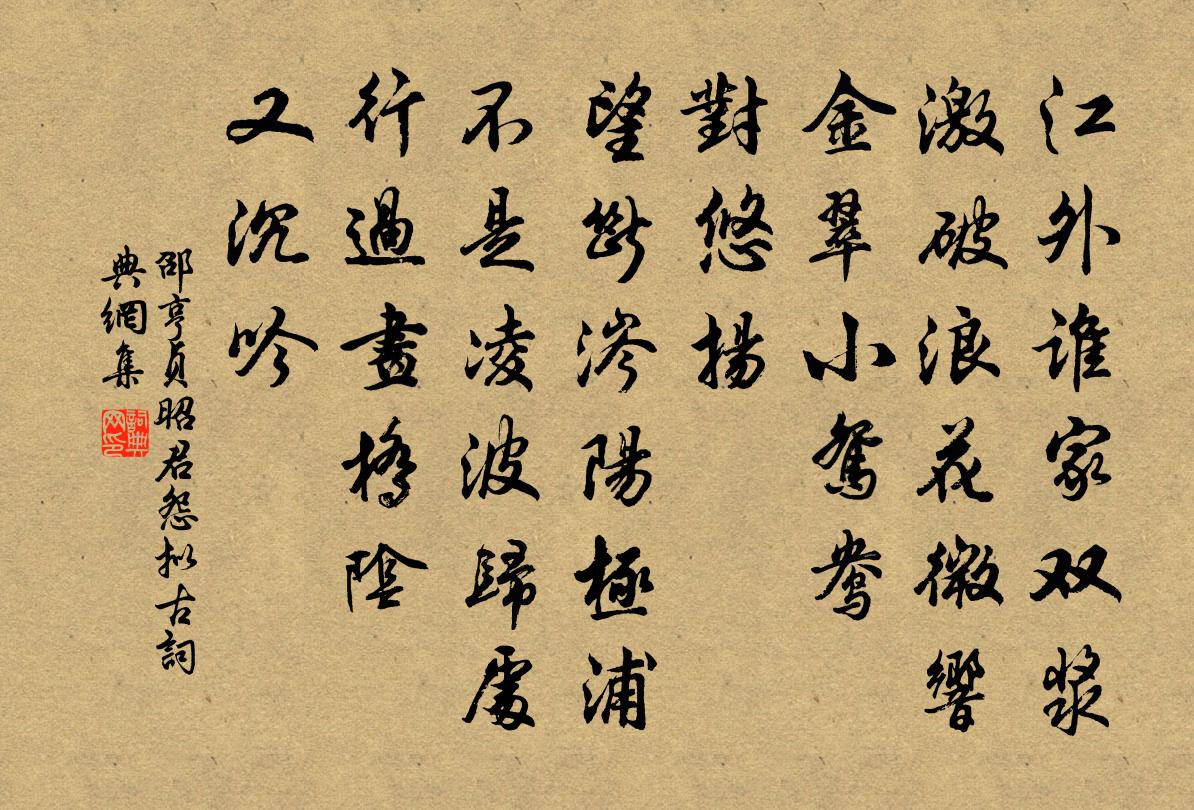 江外谁家双漿
激破浪花微響
金翠小鴛鴦
對悠揚
望斷涔陽極浦
不是凌波歸處
行過畫橋陰
又沉吟
邵亨貞昭君怨拟古詞
典網集
詞典网印